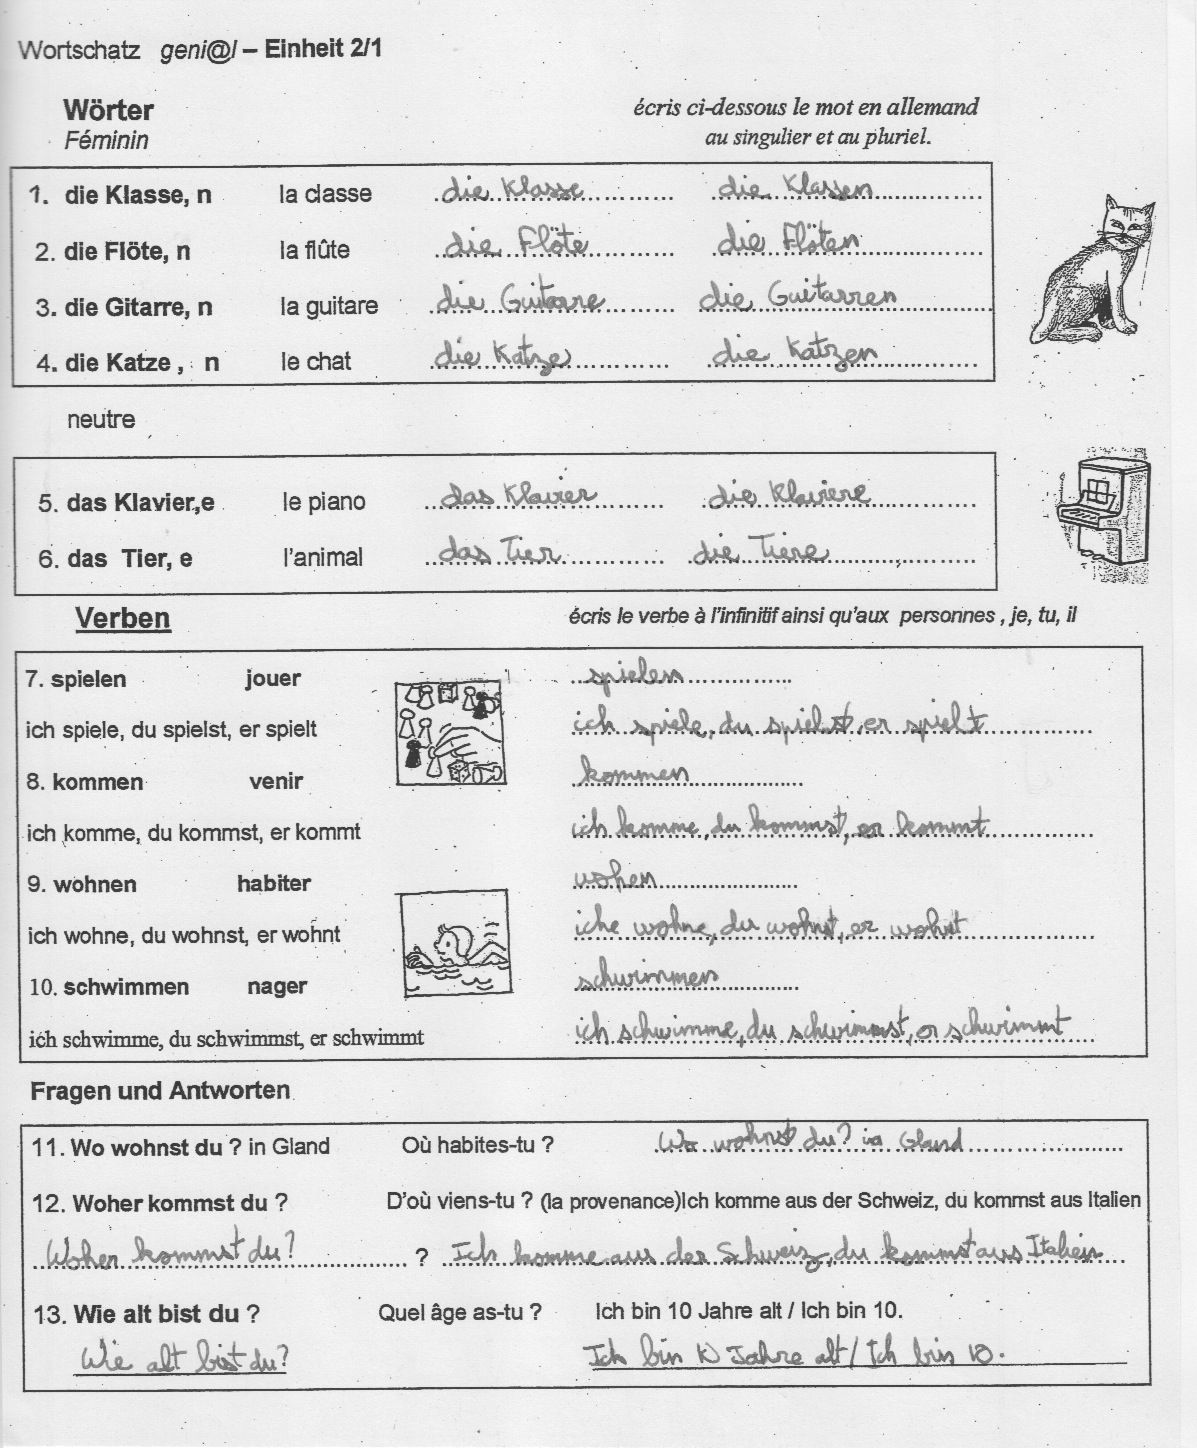 Wortschatz geni@l – Einheit 2/1
Wörter écris ci-dessous le mot en allemand
Féminin au singulier et au pluriel.
1. die Klasse, n la classe die Klasse die Klassen
2. die Flöte, n la flûte die Flöte die Flöten
3. die Gitarre, n la guitare die Guitarre die Guitarren
4. die Katze , n le chat die Katze die Katzen
neutre
5. das Klavier,e le piano das Klavier die Klaviere
6. das Tier, e l'animal das Tier die Tiere
Verben écris le verbe à l'infinitif ainsi qu'aux personnes , je, tu, il
7. spielen jouer spielen
ich spiele, du spielst, er spielt ich spiele, du spielst, er spielt
8. kommen venir kommen
ich komme, du kommst, er kommt ich komme, du kommst, er kommt
9. wohnen habiter wohen
ich wohne, du wohnst, er wohnt iche wohne, du wohnst, er wohnt
10. schwimmen nager schwimmen
ich schwimme, du schwimmst, er schwimmt ich schwimme, du schwimmst, er schwimmt
Fragen und Antworten
11. Wo wohnst du ? in Gland Où habites-tu ? Wo wohnst du? in Gland
12. Woher kommst du ? D'où viens-tu ? (la provenance)Ich komme aus der Schweiz, du kommst aus Italien
Woher kommst du? ? Ich komme aus der Schweiz, du kommst aus Italien
13. Wie alt bist du ? Quel âge as-tu ? Ich bin 10 Jahre alt / Ich bin 10.
Wie alt bist du? Ich bin 10 Jahre alt / Ich bin 10.